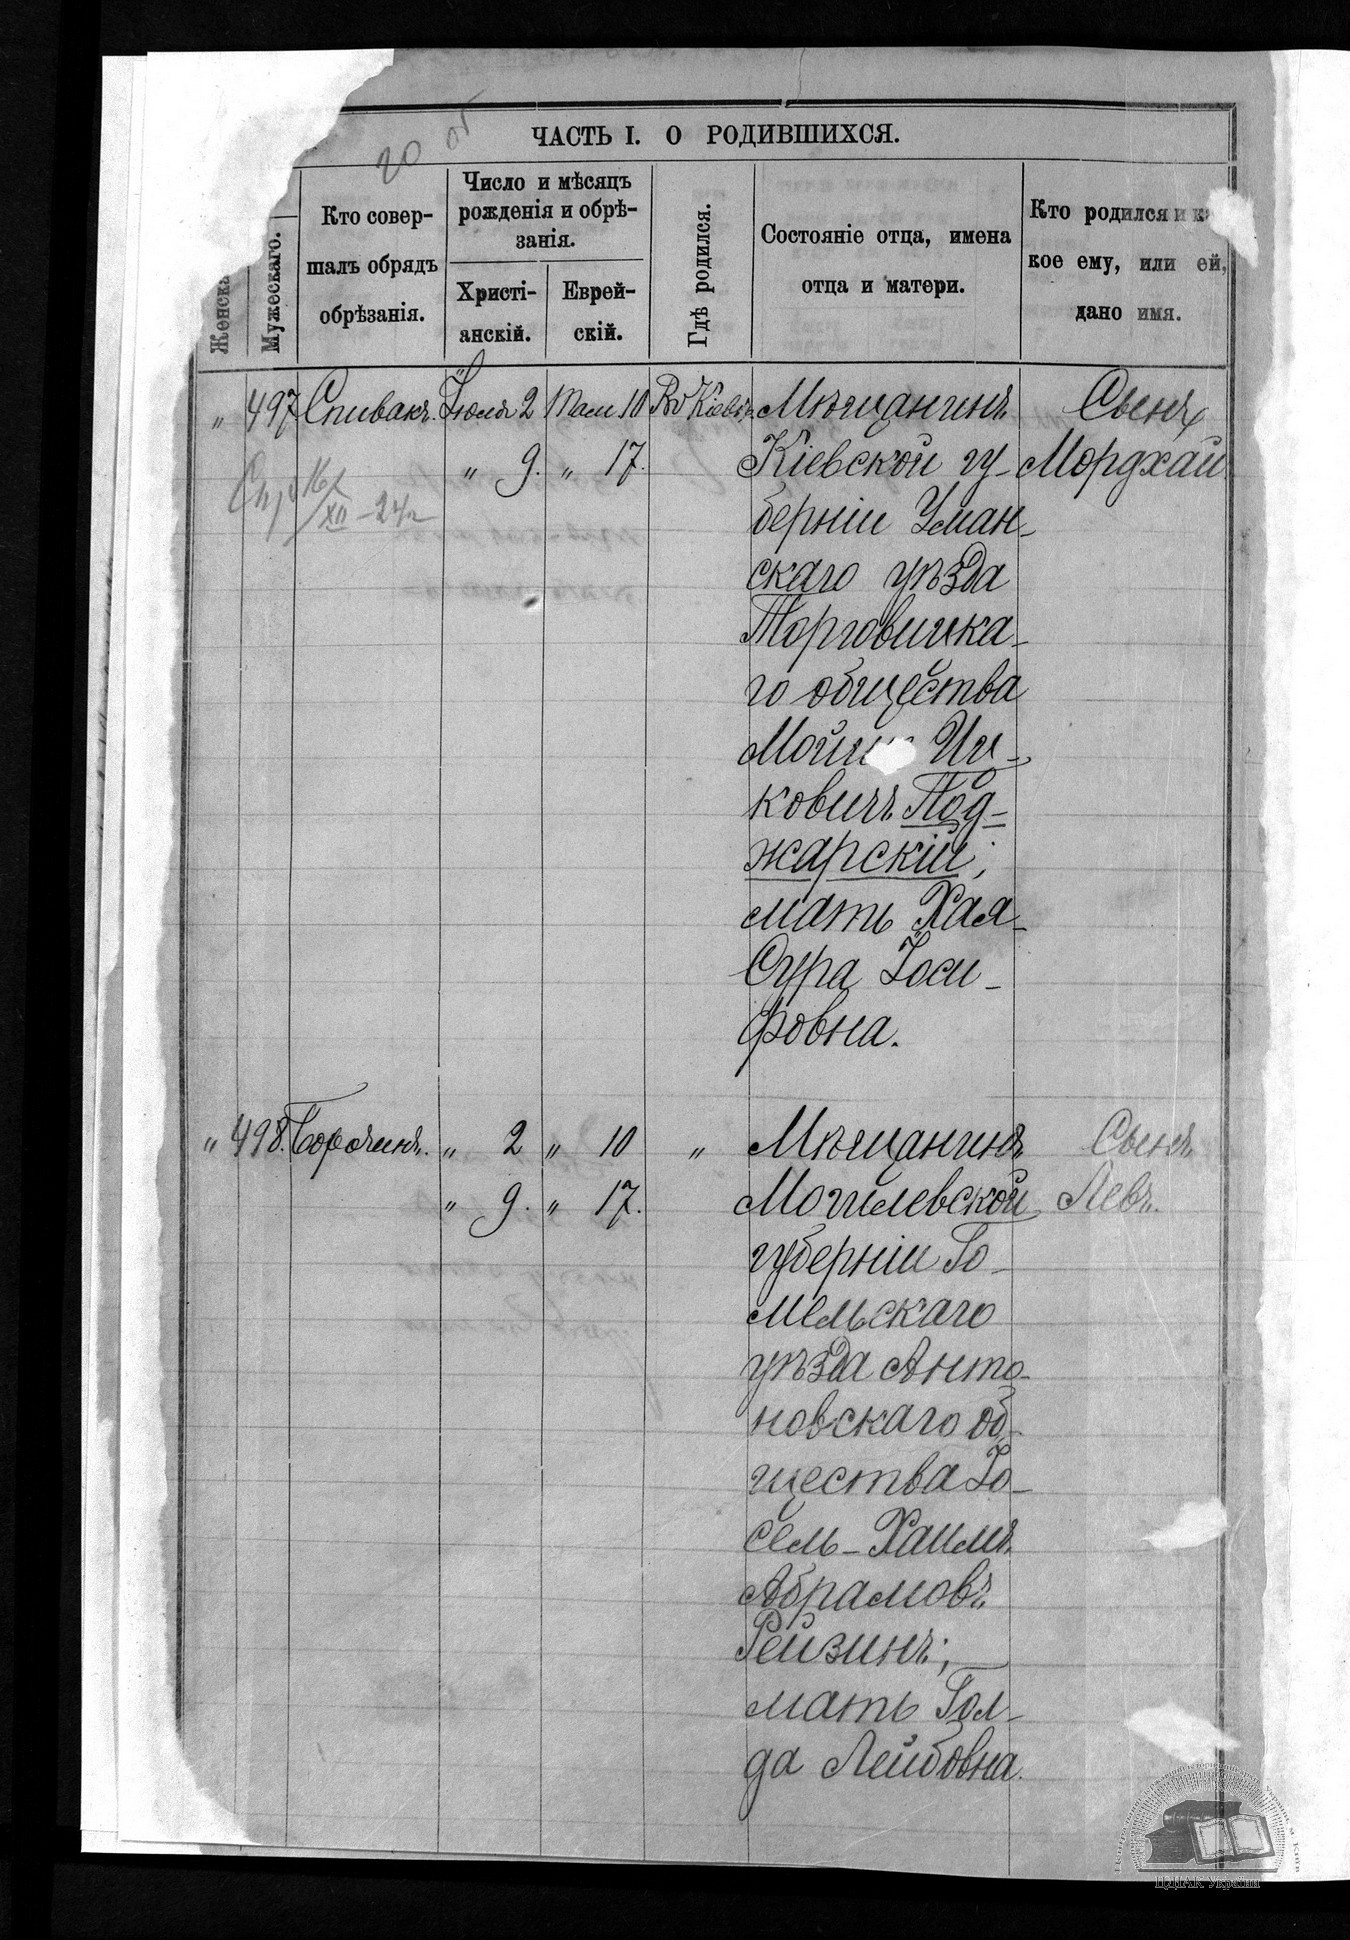 20 об
ЧАСТЬ I. О РОДИВШИХСЯ.
Женска
Мужескаго.
Кто совер-
шалъ обрядъ
обрѣзанія.
Число и мѣсяцъ
рожденія и обрѣ-
занія.
Христі-
анскій.
Еврей-
скій.
Гдѣ родился.
Состояніе отца, имена
отца и матери.
Кто родился и ка
кое ему, или ей,
дано имя.
„ 497 Спивакъ. Іюля 2 Там. 10 Въ Кіевѣ. Мѣщанинъ Сынъ
„ 9. „ 17. Кіевской гу- Мордхай
берніи Уман-
скаго уѣзда
Торговицка-
го общества
Мой Иц-
ковичъ Под-
жарскій;
мать Хая-
Сура Іоси-
фовна.
XII – 24
„ 498. Бородинъ. „ 2 „ 10 „ Мѣщанинъ Сынъ
„ 9. „ 17. Могилевской Левъ.
губерніи Го-
мельскаго
уѣзда Анто-
новскаго об-
щества Іо-
сель-Хаимъ
Абрамовъ
Рейзинъ;
мать Гол-
да Лейбовна.
ЦДІАК України